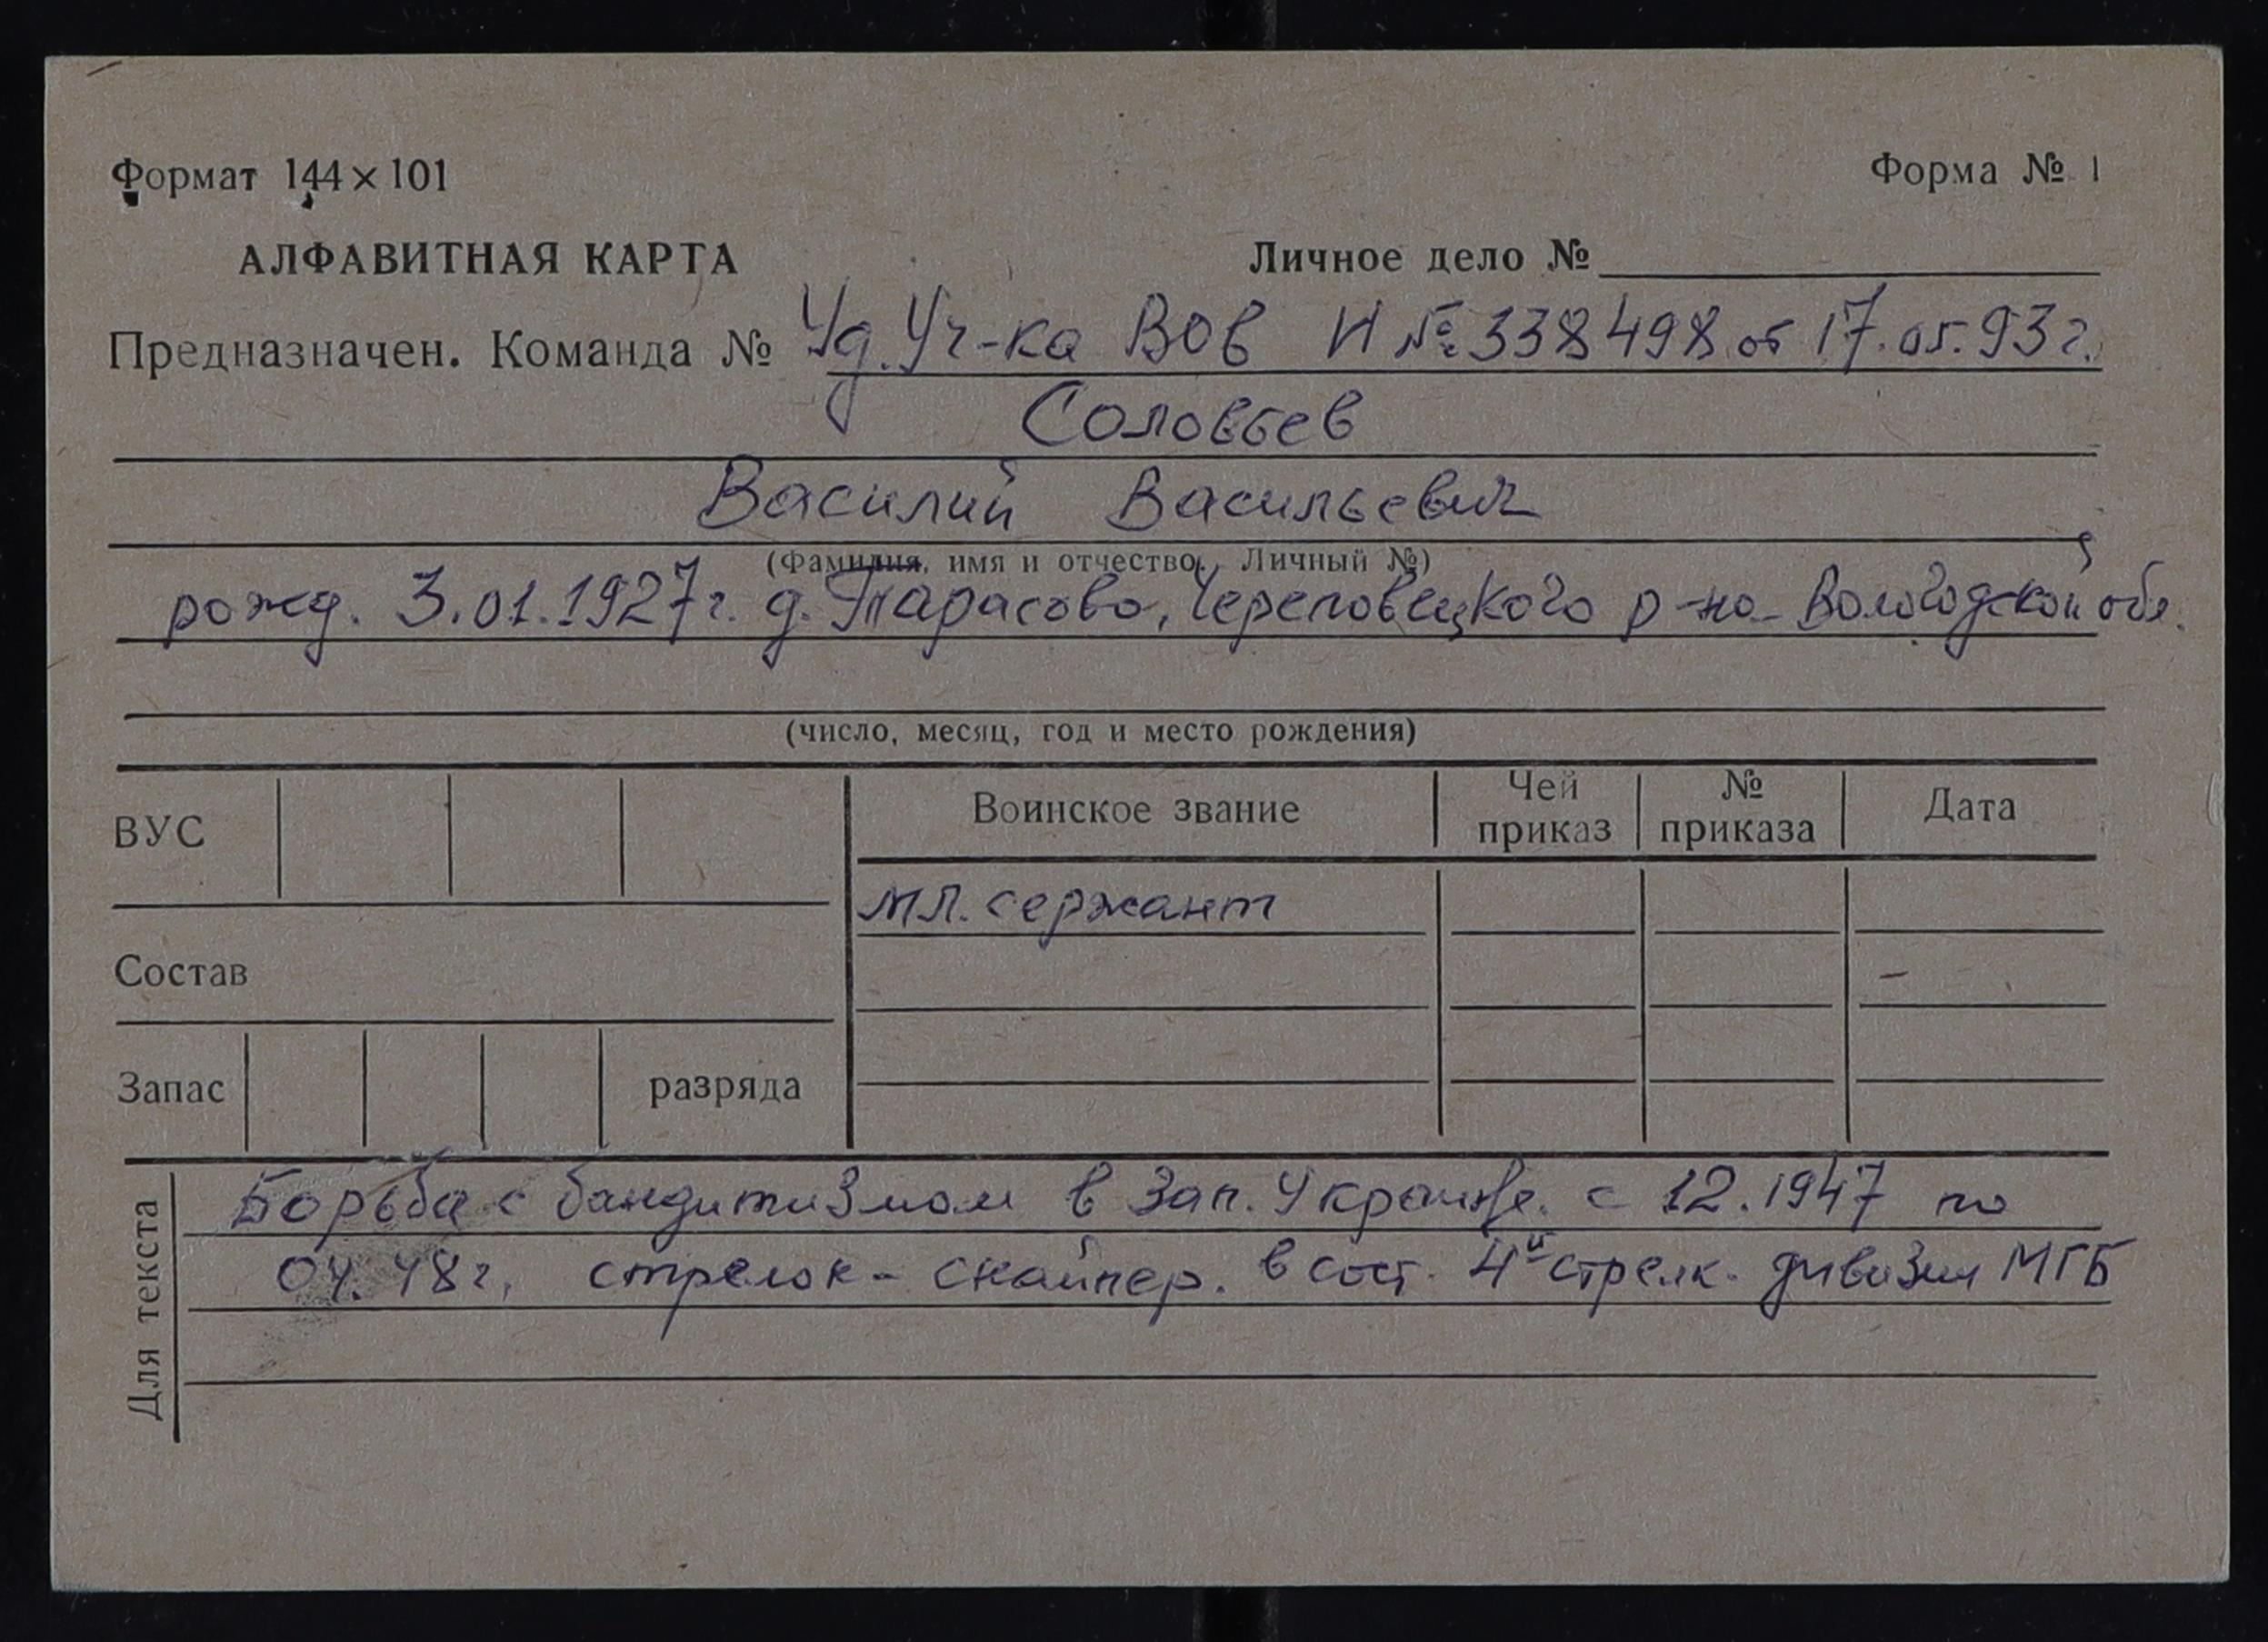 Формат 144×101
Форма № 1
АЛФАВИТНАЯ КАРТА
Личное дело №
Предназначен. Команда № Уд. Уч-ка ВОВ И №: 338498 от 17.05.93г.
Соловьев
Василий Васильевич
(Фамилия, имя и отчество. Личный №)
рожд. 3.01.1927г. д. Тарасово, Череповецкого р-на Вологодской обл.
(число, месяц, год и место рождения)
ВУС
Воинское звание
Чей приказ
№ приказа
Дата
мл. сержант
Состав
Запас
разряда
Для текста
Борьба с бандитизмом в Зап. Украине. с 12.1947 по
04.48г, стрелок-снайпер. в сост. 4й стрелк. дивизии МГБ